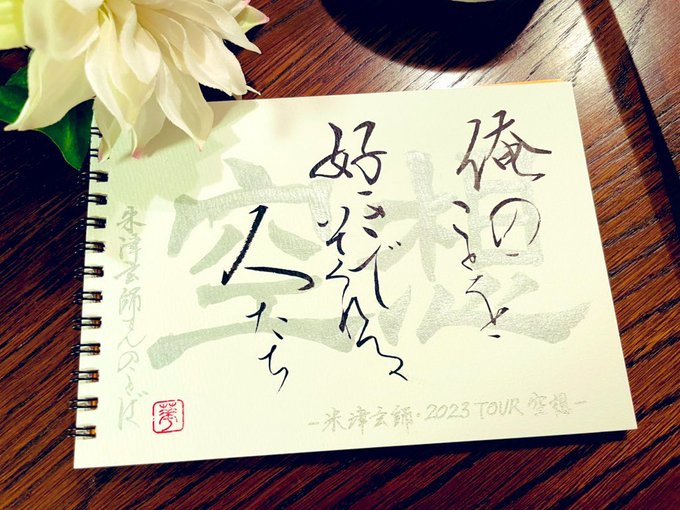 俺のことを、
好きでいてくれる
人たち
空想
米津玄師さんのことば
-米津玄師・2023 TOUR 空想-